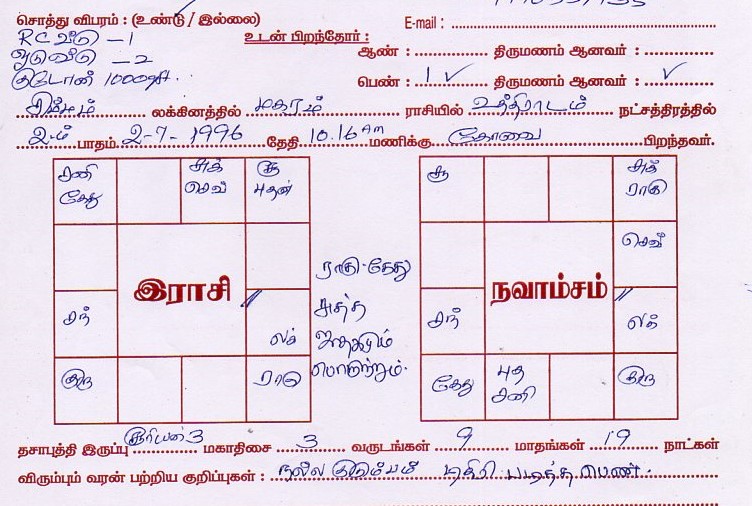 சொத்து விபரம் : (உண்டு / இல்லை) E-mail :
RC வீடு - 1 உடன் பிறந்தோர் :
ஓடு வீடு - 2 ஆண் : திருமணம் ஆனவர் :
குடோன் 1000 பெண் : 1 ✓ திருமணம் ஆனவர் : ✓
சிம்மம் லக்கினத்தில் மகரம் ராசியில் உத்திராடம் நட்சத்திரத்தில்
2ம் பாதம் 2-7-1996 தேதி 10.16 AM மணிக்கு கோவை பிறந்தவர்.
சனி கேது
சுக் செவ்
சூ புதன்
இராசி
சந்
லக்
குரு
ராகு
ராகு கேது
சுத்த
ஜாதகமும்
பொருந்தும்.
சூ
சுக் ராகு
செவ்
நவாம்சம்
சந்
லக்
கேது
புத சனி
குரு
தசாபுத்தி இருப்பு சூரியன் 3 மகாதிசை 3 வருடங்கள் 9 மாதங்கள் 19 நாட்கள்
விரும்பும் வரன் பற்றிய குறிப்புகள் : நல்ல குடும்பம் டிகிரி படித்த பெண்.